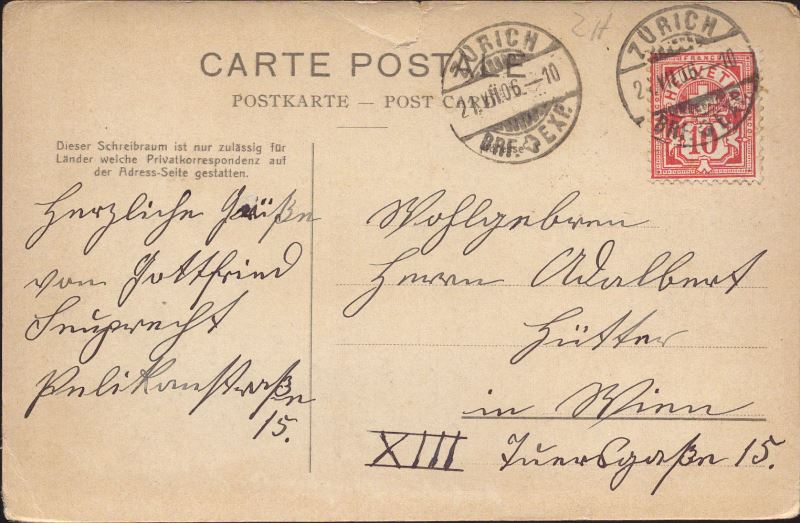 CARTE POSTALE
POSTKARTE — POST CARD
Dieser Schreibraum ist nur zulässig für
Länder welche Privatkorrespondenz auf
der Adress-Seite gestatten.
ZÜRICH
21.VII.06.—10
BRF. EXP.
ZÜRICH
21.VII.06.—10
BRF. EXP.
FRANCO
HELVETIA
10
Herzliche Grüße
von Gottfried
Pelikanstraße
15.
Wohlgebren
Herrn Adalbert
Hütter
in Wien
XIII 15.